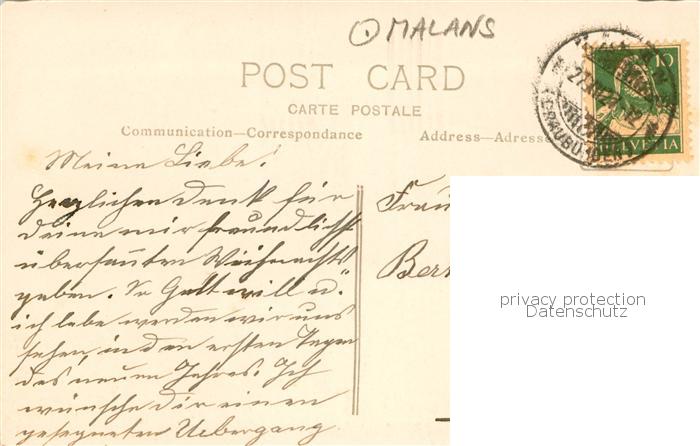 ⊙ MALANS
POST CARD
CARTE POSTALE
Communication—Correspondance
Address—Adresse
10
HELVETIA
Meine Liebe!
Herzlichen dank für
deine mir freundlichst
übersandten Weihnachts
gaben. So Gott will u.
ich lebe werden wir uns
sehen, in den ersten Tagen
des neuen Jahres. Ich
wünsche dir einen
gesegneten Uebergang
Frau
Bern
privacy protection
Datenschutz